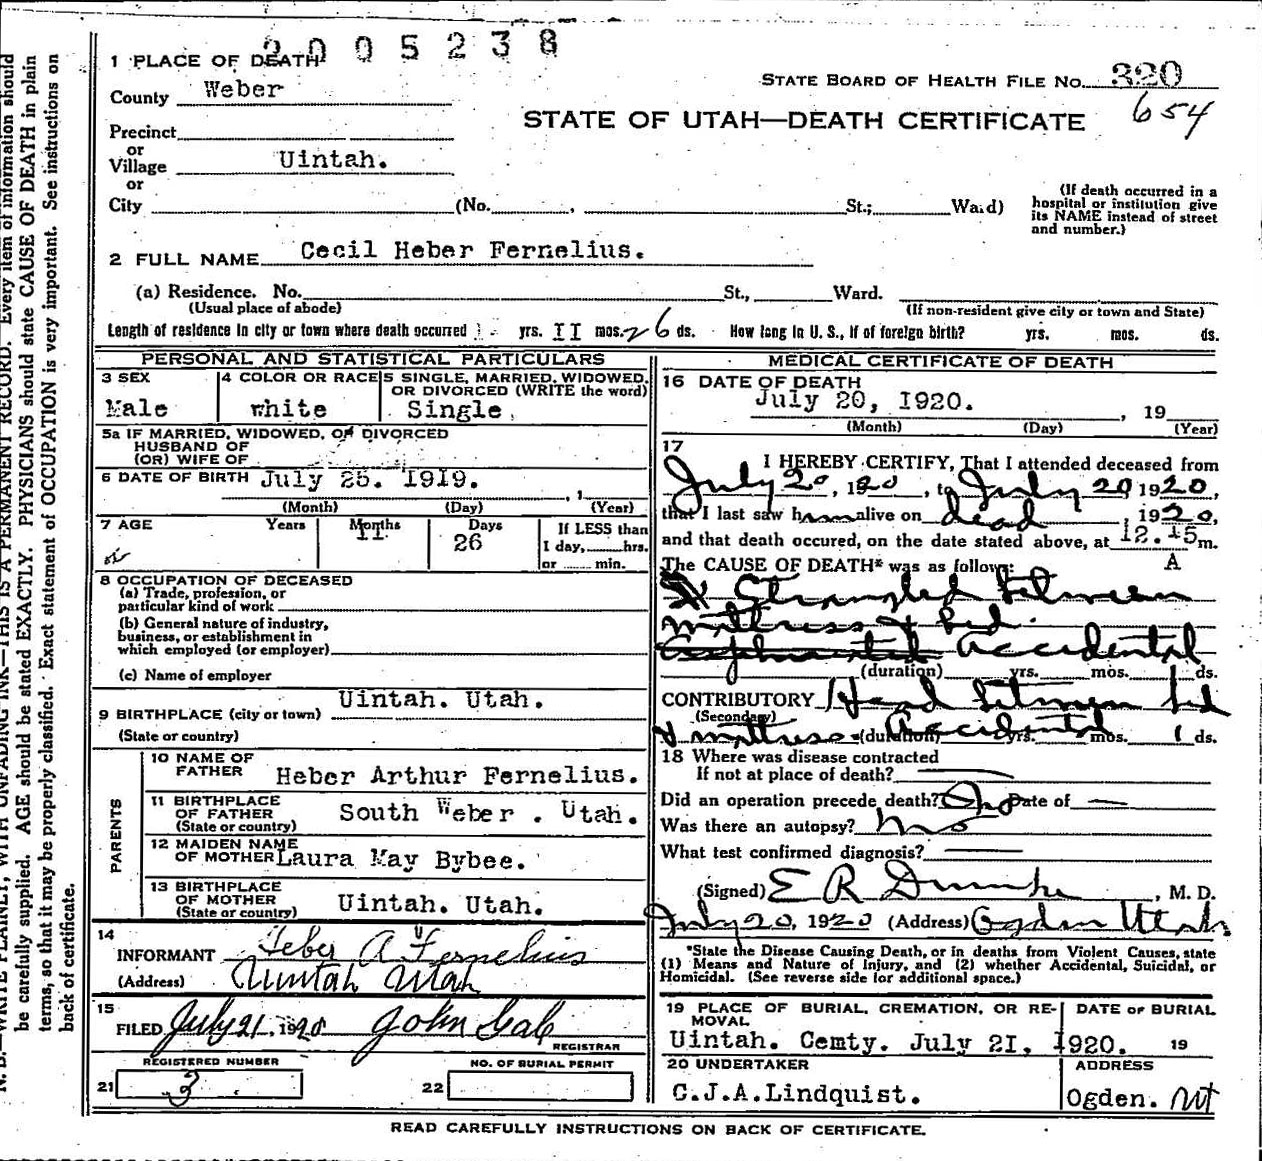 2005238
1 PLACE OF DEATH
STATE BOARD OF HEALTH FILE No. 320
County Weber
654
STATE OF UTAH—DEATH CERTIFICATE
Precinct
or
Village Uintah.
or
City (No. , St.; Ward)
(If death occurred in a
hospital or institution give
its NAME instead of street
and number.)
2 FULL NAME Cecil Heber Fernelius.
(a) Residence. No. St., Ward.
(Usual place of abode) (If non-resident give city or town and State)
Length of residence in city or town where death occurred yrs. II mos. 26 ds. How long in U. S., if of foreign birth? yrs. mos. ds.
PERSONAL AND STATISTICAL PARTICULARS
3 SEX 4 COLOR OR RACE 5 SINGLE, MARRIED, WIDOWED,
OR DIVORCED (WRITE the word)
Male white Single.
5a IF MARRIED, WIDOWED, OR DIVORCED
HUSBAND OF
(OR) WIFE OF
6 DATE OF BIRTH July 25. 1919.
, 1
(Month) (Day) (Year)
7 AGE Years Months Days If LESS than
II 26 1 day, hrs.
or min.
8 OCCUPATION OF DECEASED
(a) Trade, profession, or
particular kind of work
(b) General nature of industry,
business, or establishment in
which employed (or employer)
(c) Name of employer
Uintah. Utah.
9 BIRTHPLACE (city or town)
(State or country)
PARENTS
10 NAME OF
FATHER Heber Arthur Fernelius.
11 BIRTHPLACE
OF FATHER South Weber . Utah.
(State or country)
12 MAIDEN NAME
OF MOTHER Laura May Bybee.
13 BIRTHPLACE
OF MOTHER Uintah. Utah.
(State or country)
14
INFORMANT Heber A Fernelius
(Address) Uintah Utah
15
FILED July 21, 1920 John Gale
REGISTRAR
REGISTERED NUMBER NO. OF BURIAL PERMIT
21 3 22
MEDICAL CERTIFICATE OF DEATH
16 DATE OF DEATH
July 20, 1920.
, 19
(Month) (Day) (Year)
17
I HEREBY CERTIFY, That I attended deceased from
July 20, 1920, to July 20 1920,
that I last saw him alive on dead, 1920,
and that death occured, on the date stated above, at 12.15 m.
The CAUSE OF DEATH* was as follows: A
Strangled between
mattress & bed.
Asphyxiated Accidental
(duration) yrs. mos. ds.
CONTRIBUTORY Head between bed
(Secondary)
& mattress - Accidental (duration) yrs. mos. 1 ds.
18 Where was disease contracted
If not at place of death?
Did an operation precede death? No Date of
Was there an autopsy? no
What test confirmed diagnosis?
(Signed) E R Dumke, M. D.
July 20, 1920 (Address) Ogden Utah.
*State the Disease Causing Death, or in deaths from Violent Causes, state
(1) Means and Nature of Injury, and (2) whether Accidental, Suicidal, or
Homicidal. (See reverse side for additional space.)
19 PLACE OF BURIAL, CREMATION, OR RE- DATE OF BURIAL
MOVAL
Uintah. Cemty. July 21, 1920. 19
20 UNDERTAKER ADDRESS
C.J.A.Lindquist. Ogden. Ut
READ CAREFULLY INSTRUCTIONS ON BACK OF CERTIFICATE.
N. B.—WRITE PLAINLY, WITH UNFADING INK—THIS IS A PERMANENT RECORD. Every item of information should
be carefully supplied. AGE should be stated EXACTLY. PHYSICIANS should state CAUSE OF DEATH in plain
terms, so that it may be properly classified. Exact statement of OCCUPATION is very important. See instructions on
back of certificate.